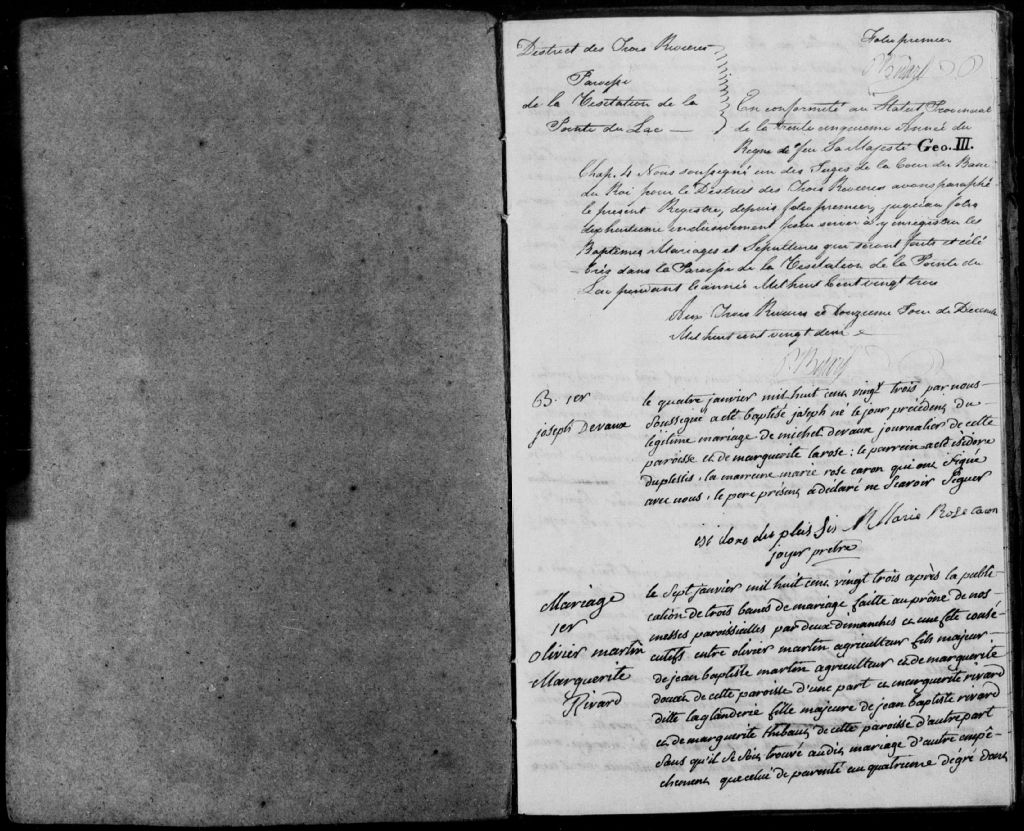 District des Trois Rivieres
Folio premier
Paroisse
de la Visitation de la
Pointe du Lac
En conformité au Statut Provincial
de la trente cinquieme Année du
Regne de feu Sa Majesté Geo. III.
Chap. 4 Nous soussigné un des Juges de la Cour du Banc
du Roi pour le District des Trois Rivieres avons paraphé
le present Registre, depuis folio premier, jusqu'au folio
dixhuitieme inclusivement pour servir à y enregistrer les
Baptêmes Mariages et Sépultures qui seront faits et célé
brés dans la Paroisse de la Visitation de la Pointe du
Lac pendant l'année Mil huit Cent vingt trois
Aux Trois Rivieres ce douzieme Jour de Decembre
Mil huit cent vingt deux
B. 1er
joseph Devaux
le quatre janvier mil huit cent vingt trois par nous
soussigné a été baptisé joseph né le jour précédent du
légitime mariage de michel devaux journalier de cette
paroisse et de marguerite larose : le parrein a été isidore
duplessis, la marreine marie rose caron qui ont signé
avec nous, le pere présent a déclaré ne scavoir signer
isi dore du plei sis Marie Rose caron
joyer prêtre
Mariage
1er
Olivier martin
Marguerite
Rivard
le sept janvier mil huit cent vingt trois après la publi
cation de trois bancs de mariage faitte au prône de nos
messes paroissialles par deux dimanches et une fête consé
cutifs entre olivier martin agriculteur fils majeur
de jean baptiste martin agriculteur et de marguerite
doucet de cette paroisse d'une part et marguerite rivard
ditte laglanderie fille majeure de jean baptiste rivard
et de marguerite thibaut de cette paroisse d'autre part
sans qu'il se soit trouvé audit mariage d'autre empê
chement que celui de parenté au quatrieme dégré dont